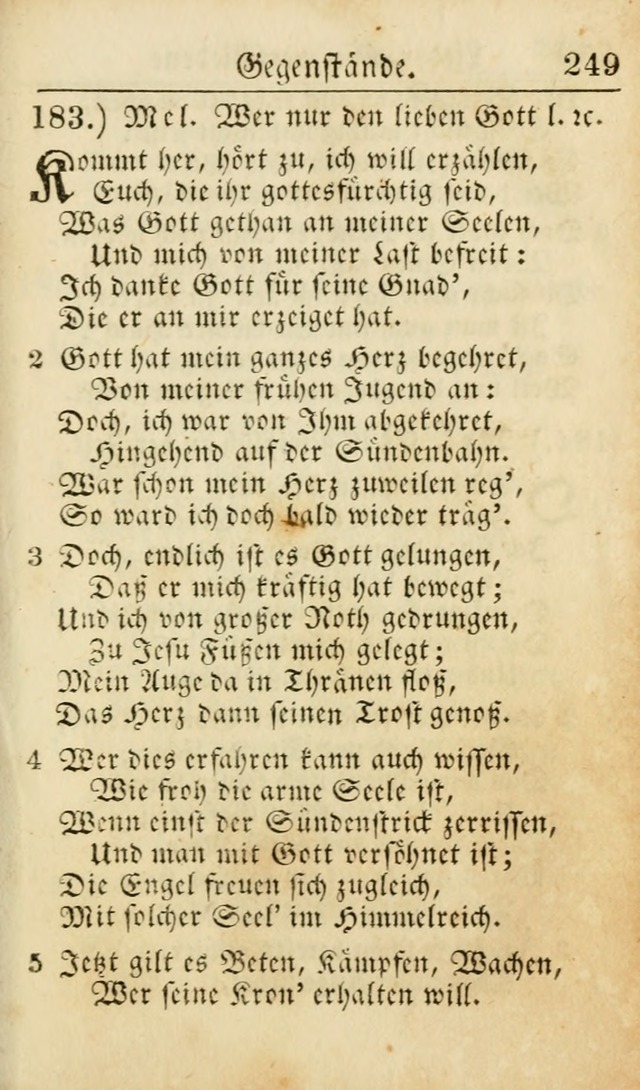 Gegenstände. 249
183.) Mel. Wer nur den lieben Gott l. ꝛc.
Kommt her, hört zu, ich will erzählen,
Euch, die ihr gottesfürchtig seid,
Was Gott gethan an meiner Seelen,
Und mich von meiner Last befreit:
Ich danke Gott für seine Gnad’,
Die er an mir erzeiget hat.
2 Gott hat mein ganzes Herz begehret,
Von meiner frühen Jugend an:
Doch, ich war von Ihm abgekehret,
Hingehend auf der Sündenbahn.
War schon mein Herz zuweilen reg’,
So ward ich doch bald wieder träg’.
3 Doch, endlich ist es Gott gelungen,
Daß er mich kräftig hat bewegt;
Und ich von großer Noth gedrungen,
Zu Jesu Füßen mich gelegt;
Mein Auge da in Thränen floß,
Das Herz dann seinen Trost genoß.
4 Wer dies erfahren kann auch wissen,
Wie froh die arme Seele ist,
Wenn einst der Sündenstrick zerrissen,
Und man mit Gott versöhnet ist;
Die Engel freuen sich zugleich,
Mit solcher Seel’ im Himmelreich.
5 Jetzt gilt es Beten, Kämpfen, Wachen,
Wer seine Kron’ erhalten will.